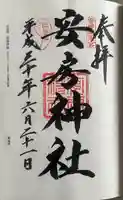 奉拝
安房神社
平成三十年六月二十一日